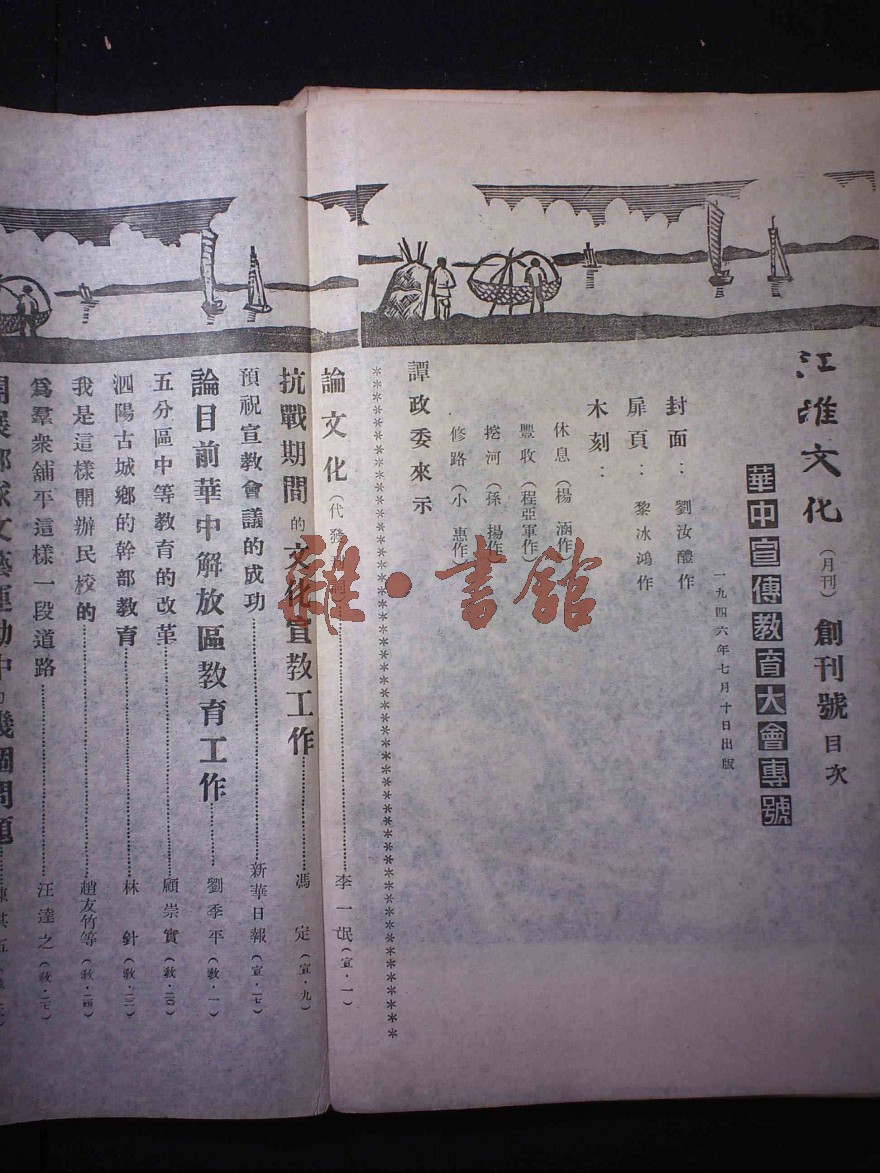 江淮文化（月刊）創刊號目次
華中宣傳教育大會專號
一九四六年七月十日出版
封面：劉汝醴作
扉頁：黎冰鴻作
木刻：
休息（楊涵作）
豐收（程亞軍作）
挖河（孫揚作）
修路（小惠作）
譚政委來示
論文化（代發刊詞）……李一氓（宣·一）
抗戰期間的文化宣教工作……馮定（宣·九）
預祝宣教會議的成功……新華日報（宣·一七）
論目前華中解放區教育工作……劉季平（敎·一）
五分區中等教育的改革……顧崇實（敎·二〇）
泗陽古城鄉的幹部教育……林針（敎·二二）
我是這樣開辦民校的……趙友竹等（敎·二四）
爲羣衆舖平這樣一段道路……汪達之（敎·二七）
開展部隊文藝運動中的幾個問題
雜·書館